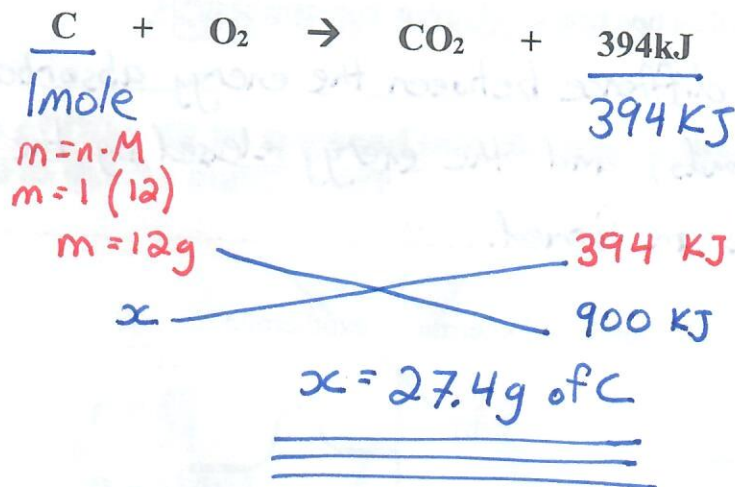 C + O₂ → CO₂ + 394kJ
1mole 394 KJ
m=n·M
m=1 (12)
m=12g 394 KJ
x 900 KJ
x = 27.4g of C